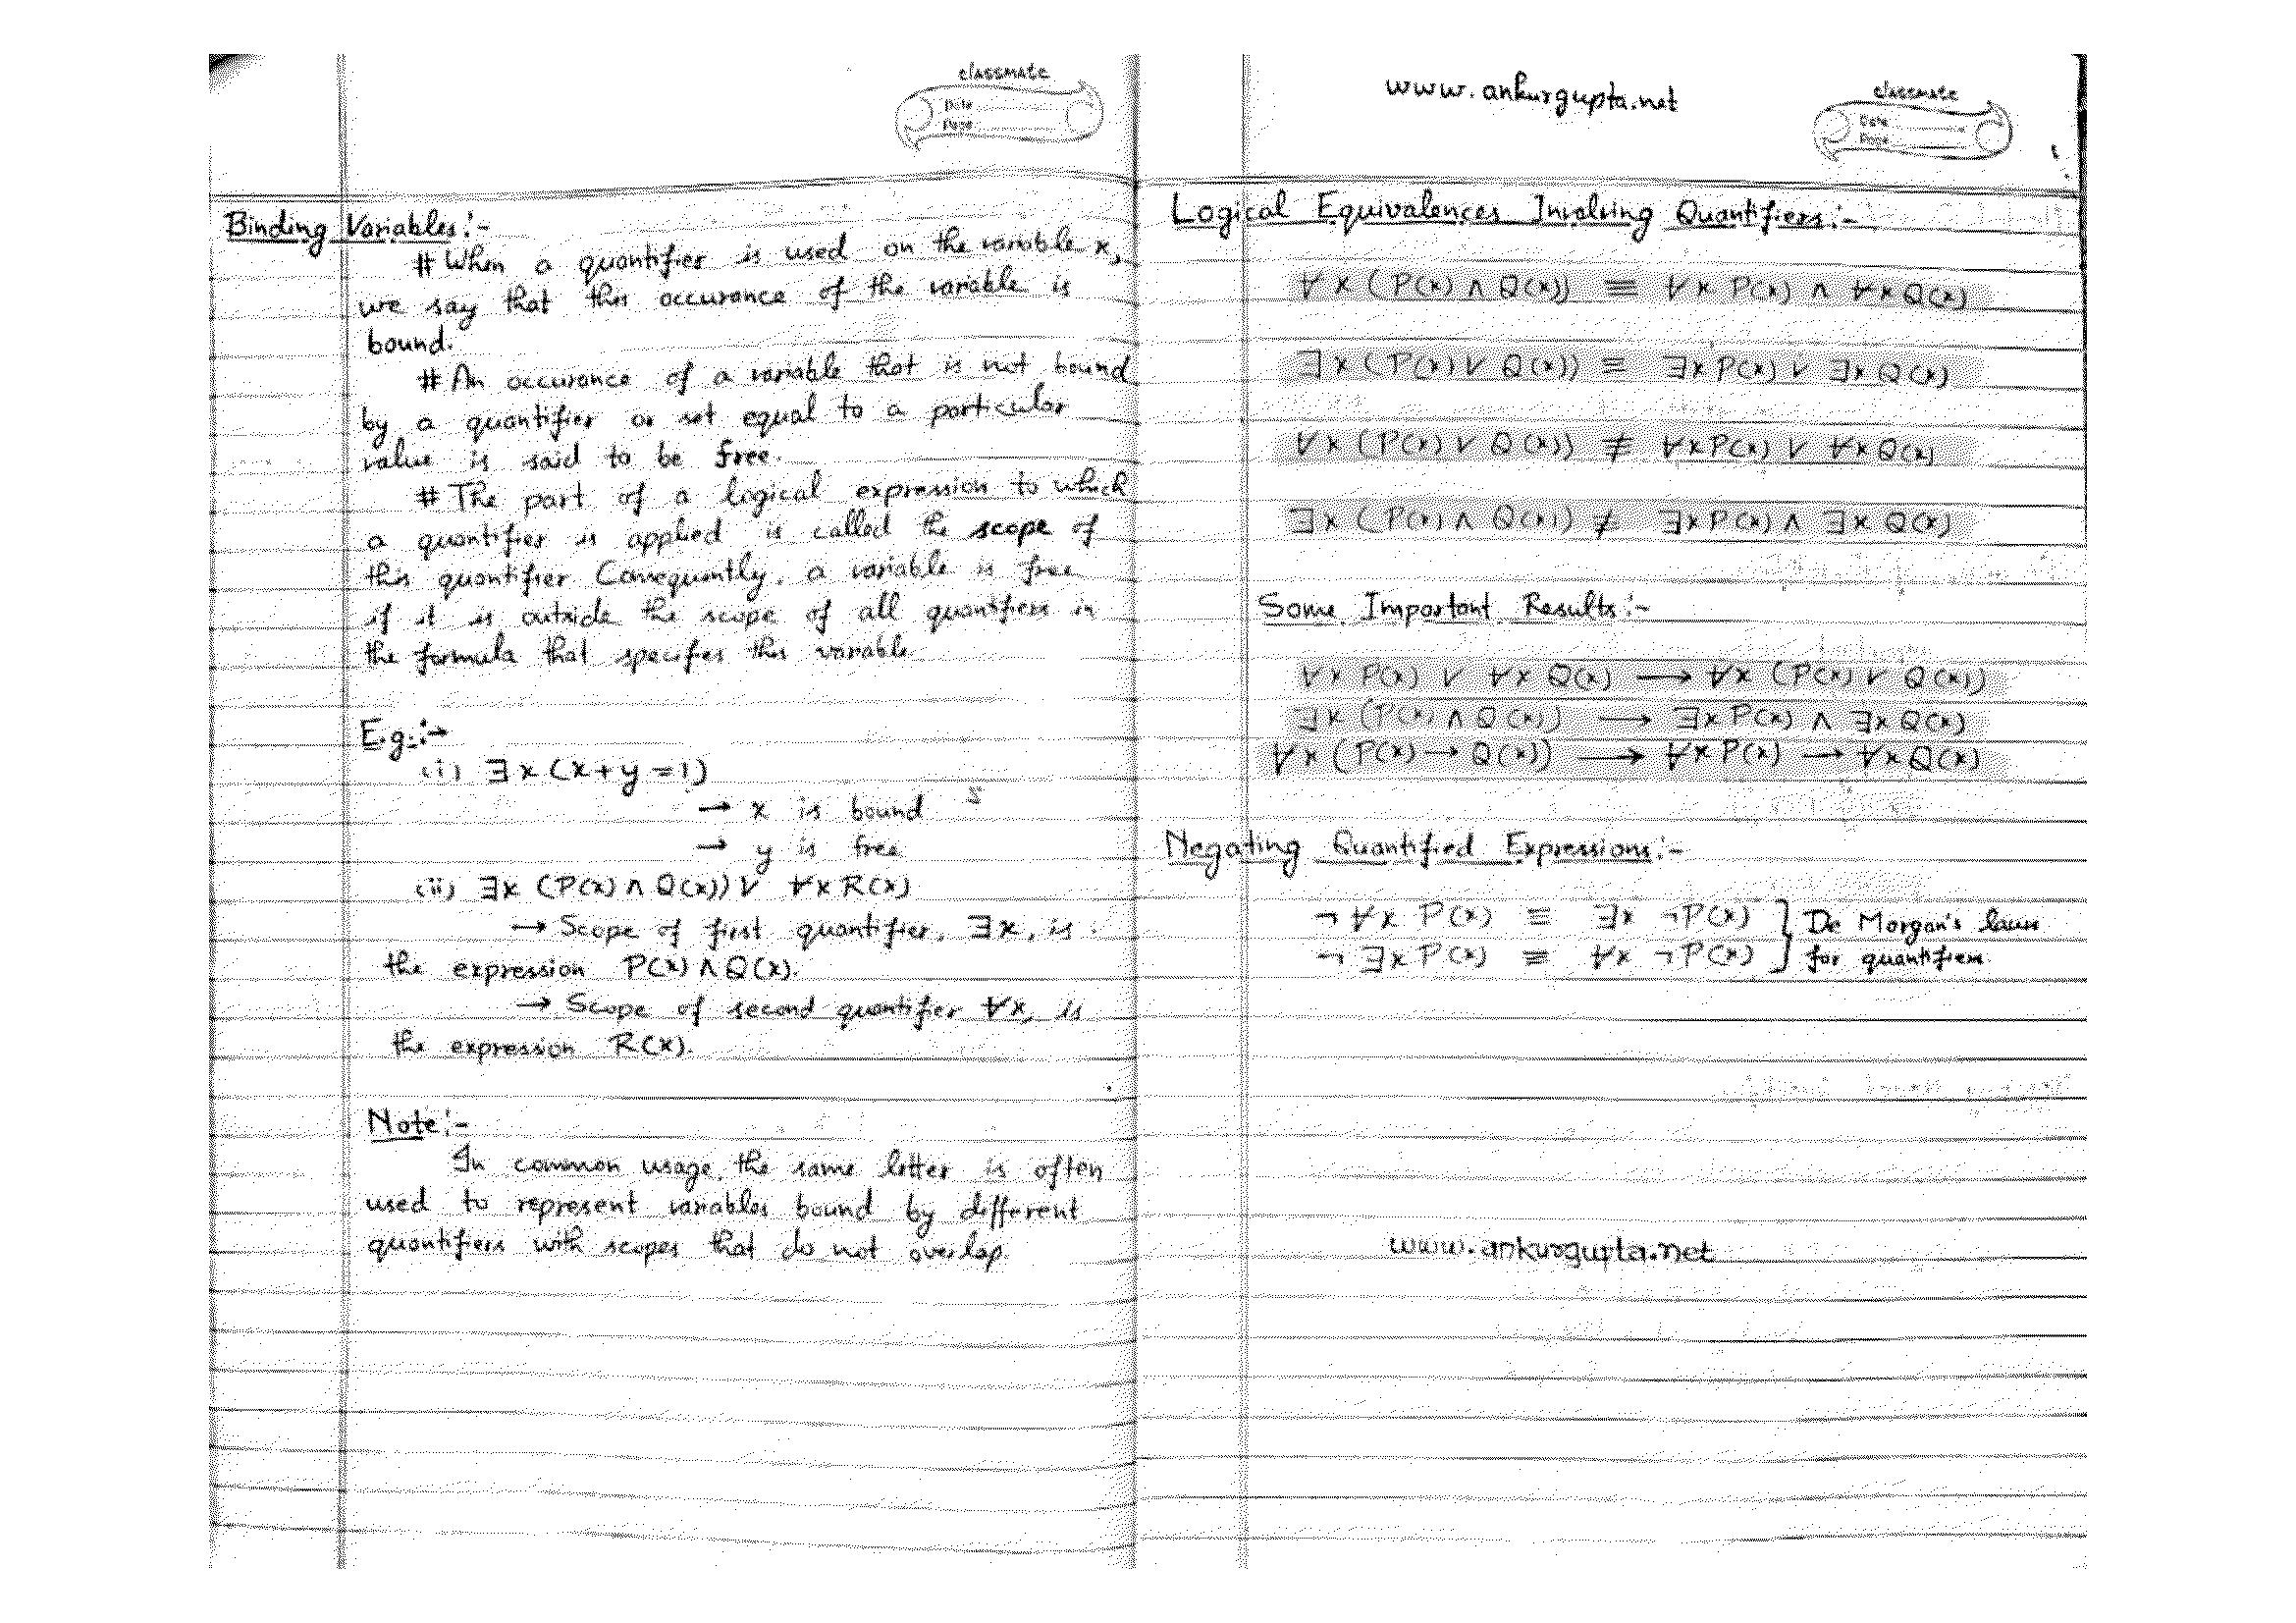 classmate
Date
Page
Binding Variables:-
# When a quantifier is used on the variable x,
we say that this occurance of the variable is
bound.
# An occurance of a variable that is not bound
by a quantifier or set equal to a particular
value is said to be free.
# The part of a logical expression to which
a quantifier is applied is called the scope of
this quantifier Consequently, a variable is free
if it is outside the scope of all quantifiers in
the formula that specifies this variable
E.g.:→
(i) ∃x (x+y=1)
→ x is bound
→ y is free
(ii) ∃x (P(x) ∧ Q(x)) ∨ ∀x R(x)
→ Scope of first quantifier, ∃x, is
the expression P(x) ∧ Q(x).
→ Scope of second quantifier ∀x, is
the expression R(x).
Note:-
In common usage, the same letter is often
used to represent variables bound by different
quantifiers with scopes that do not overlap.
www.ankurgupta.net
classmate
Date
Page
Logical Equivalences Involving Quantifiers:-
∀x (P(x) ∧ Q(x)) ≡ ∀x P(x) ∧ ∀x Q(x)
∃x (P(x) ∨ Q(x)) ≡ ∃x P(x) ∨ ∃x Q(x)
∀x (P(x) ∨ Q(x)) ≢ ∀x P(x) ∨ ∀x Q(x)
∃x (P(x) ∧ Q(x)) ≢ ∃x P(x) ∧ ∃x Q(x)
Some Important Results:-
∀x P(x) ∨ ∀x Q(x) ⟶ ∀x (P(x) ∨ Q(x))
∃x (P(x) ∧ Q(x)) ⟶ ∃x P(x) ∧ ∃x Q(x)
∀x (P(x) → Q(x)) ⟶ ∀x P(x) → ∀x Q(x)
Negating Quantified Expressions:-
¬ ∀x P(x) ≡ ∃x ¬P(x) } De Morgan's laws
¬ ∃x P(x) ≡ ∀x ¬P(x) } for quantifiers
www.ankurgupta.net